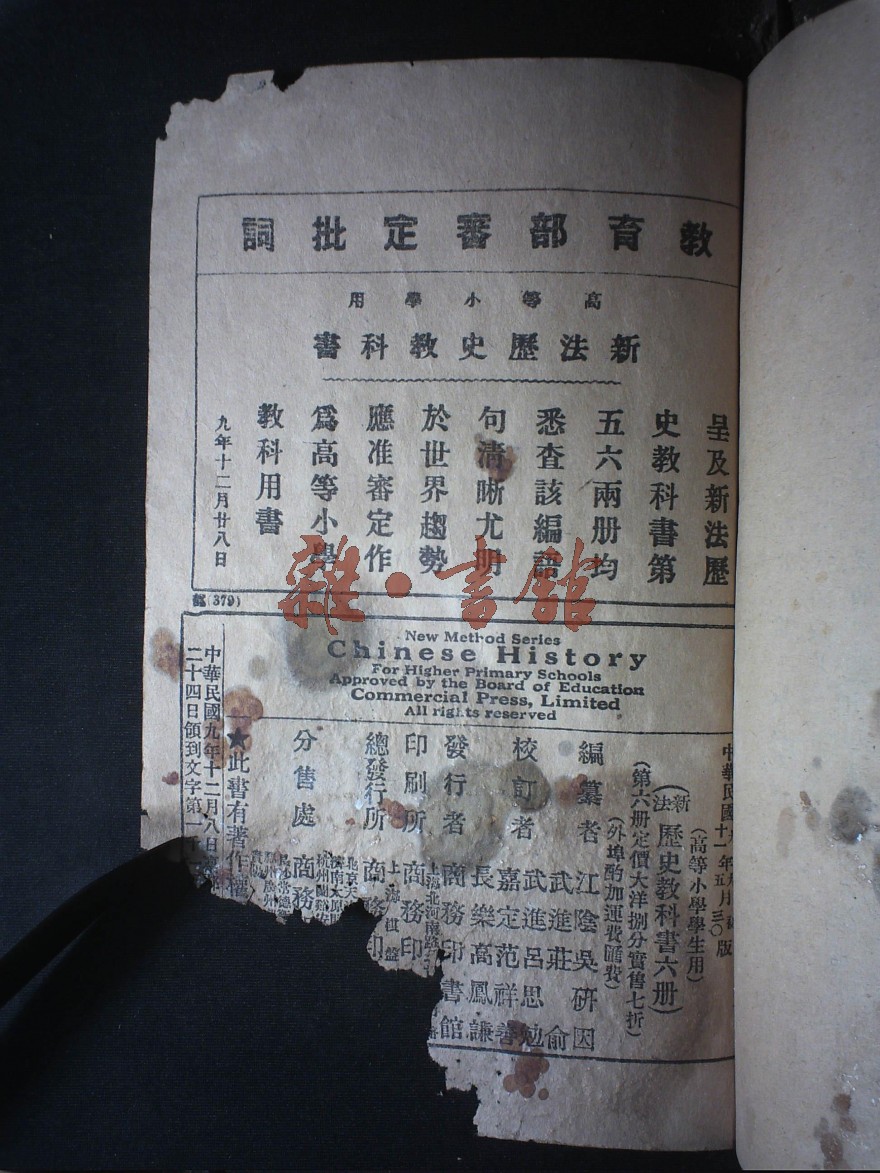 教育部審定批詞
高等小學用
新法歷史教科書
呈及新法歷
史教科書第
五六兩册均
悉查該編語
句清晰尤明
於世界趨勢
應准審定作
爲高等小學
教科用書
九年十二月廿八日
(379)
雜·書館
New Method Series
Chinese History
For Higher Primary Schools
Approved by the Board of Education
Commercial Press, Limited
All rights reserved
十一年五月三〇版
(高等小學學生用)
(新法歷史教科書六册)
(第六册定價大洋捌分實售七折)
(外埠酌加運費匯費)
編纂者 江陰吳研因
武進莊俞
校訂者 武進呂思勉
嘉定范祥善
長樂高鳳謙
發行者 商務印書館
印刷所 商務印
總發行所 商務印
分售處 商務
★此書有著作權
中華民國九年十二月八日
二十四日領到文字第一